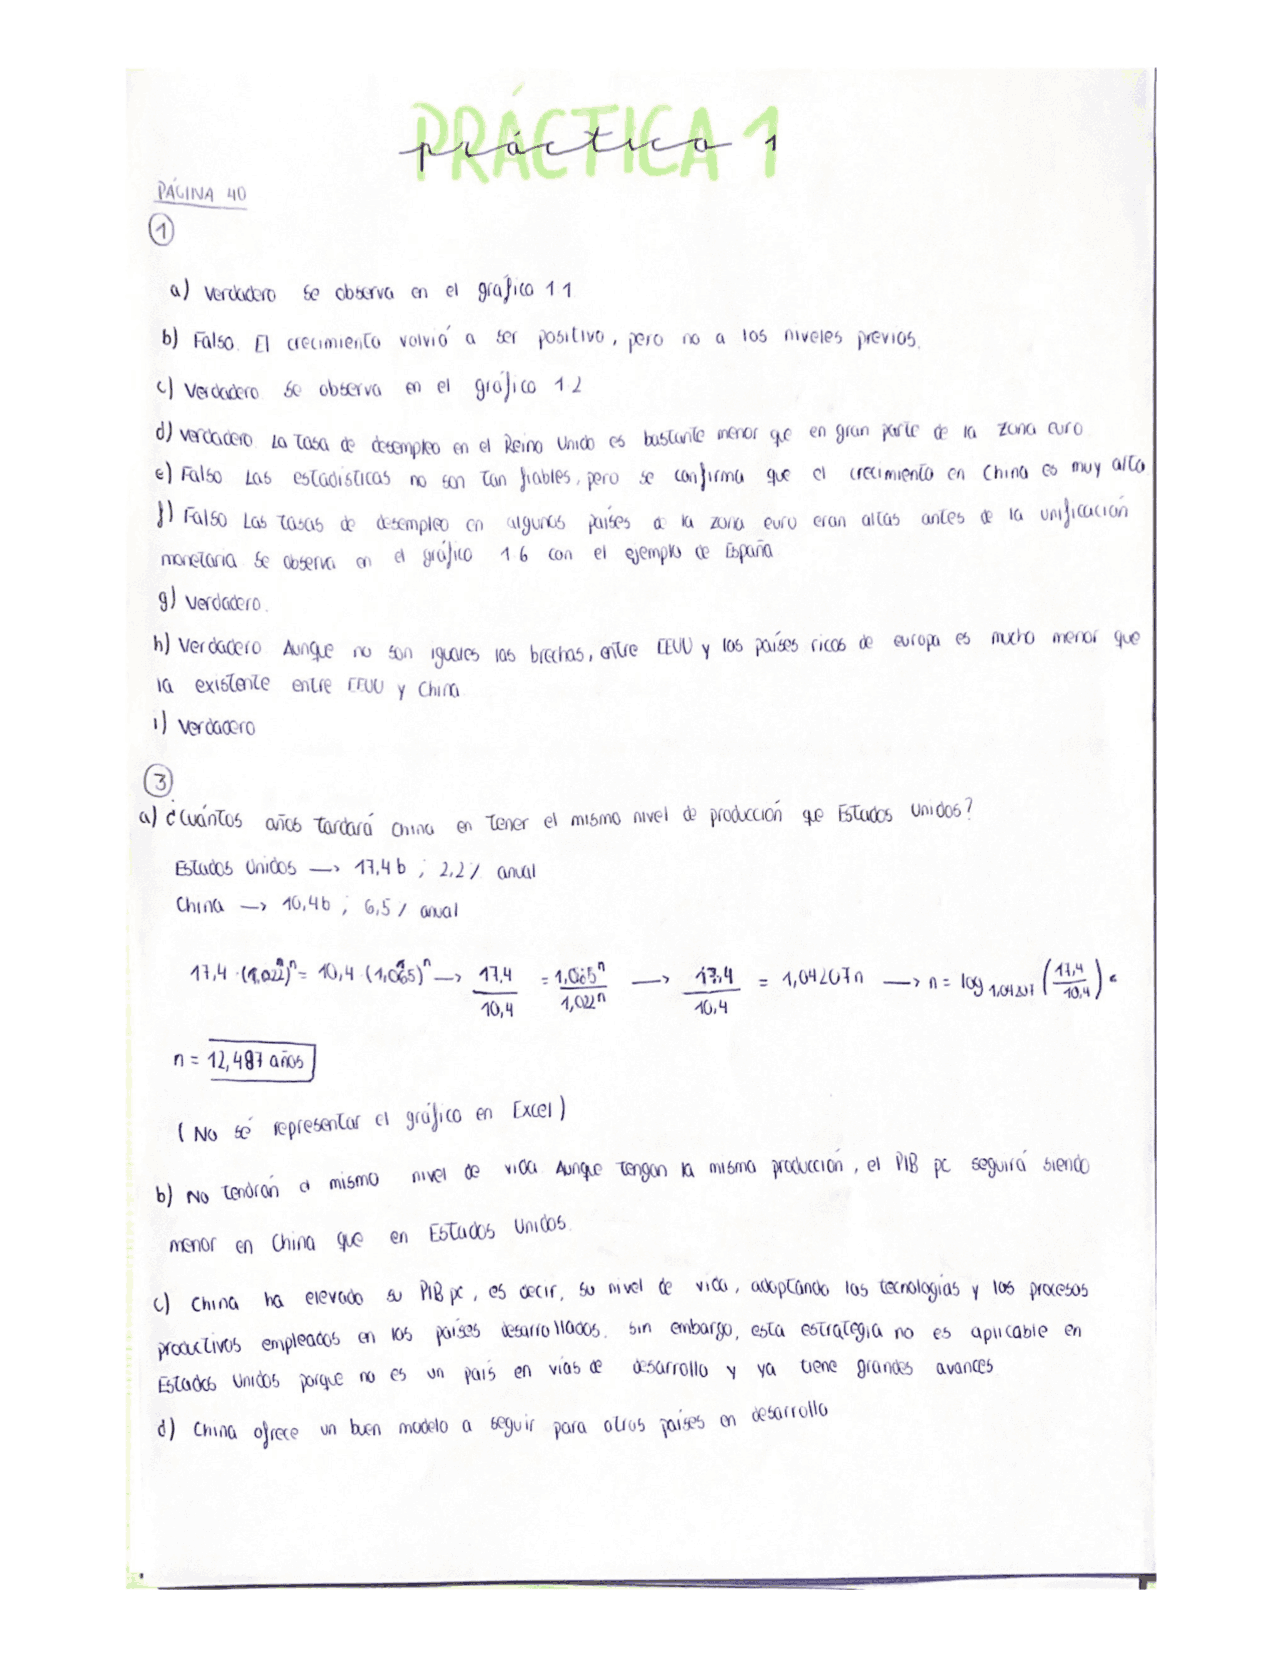 PRÁCTICA 1
práctica 1
PÁGINA 40
1
a) Verdadero Se observa en el gráfico 1 1
b) Falso. El crecimiento volvió a ser positivo, pero no a los niveles previos.
c) Verdadero Se observa en el gráfico 1 2
d) Verdadero La tasa de desempleo en el Reino Unido es bastante menor que en gran parte de la zona euro
e) Falso Las estadísticas no son tan fiables, pero se confirma que el crecimiento en China es muy alto
f) Falso Las tasas de desempleo en algunos países de la zona euro eran altas antes de la unificación
monetaria Se observa en el gráfico 1 6 con el ejemplo de España
g) Verdadero.
h) Verdadero Aunque no son iguales las brechas, entre EEUU y los países ricos de europa es mucho menor que
la existente entre EEUU y China
i) Verdadero
3
a) ¿Cuántos años tardará China en tener el mismo nivel de producción que Estados Unidos?
Estados Unidos → 17,4 b ; 2,2 % anual
China → 10,4b ; 6,5 % anual
17,4 · (1,022)ⁿ = 10,4 · (1,065)ⁿ → 17,4/10,4 = 1,065ⁿ/1,022ⁿ → 17,4/10,4 = 1,04207n → n = log 1,04207 (17,4/10,4) =
n = 12,487 años
(No sé representar el gráfico en Excel)
b) No tendrán el mismo nivel de vida Aunque tengan la misma producción, el PIB pc seguirá siendo
menor en China que en Estados Unidos.
c) China ha elevado su PIB pc, es decir, su nivel de vida, adoptando las tecnologías y los procesos
productivos empleados en los países desarrollados. Sin embargo, esta estrategia no es aplicable en
Estados Unidos porque no es un país en vías de desarrollo y ya tiene grandes avances
d) China ofrece un buen modelo a seguir para otros países en desarrollo